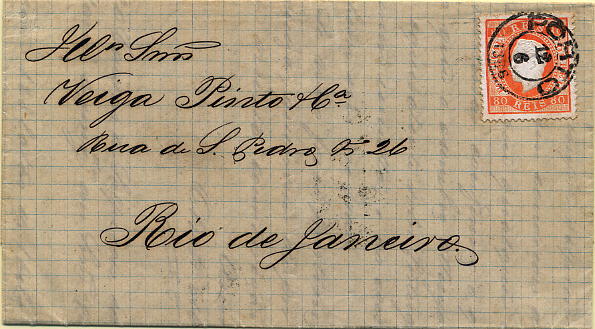 Illmos Snrs
Veiga Pinto & Ca
Rua de S. Pedro No 26
Rio de Janeiro.
PORTO
12
6
80 REIS 80